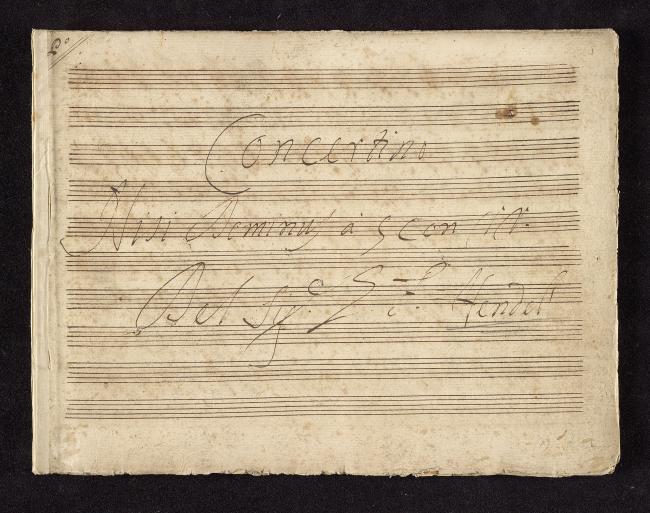 Concertino
Nisi Dominus à 5 con
Del Sig.e Hendel